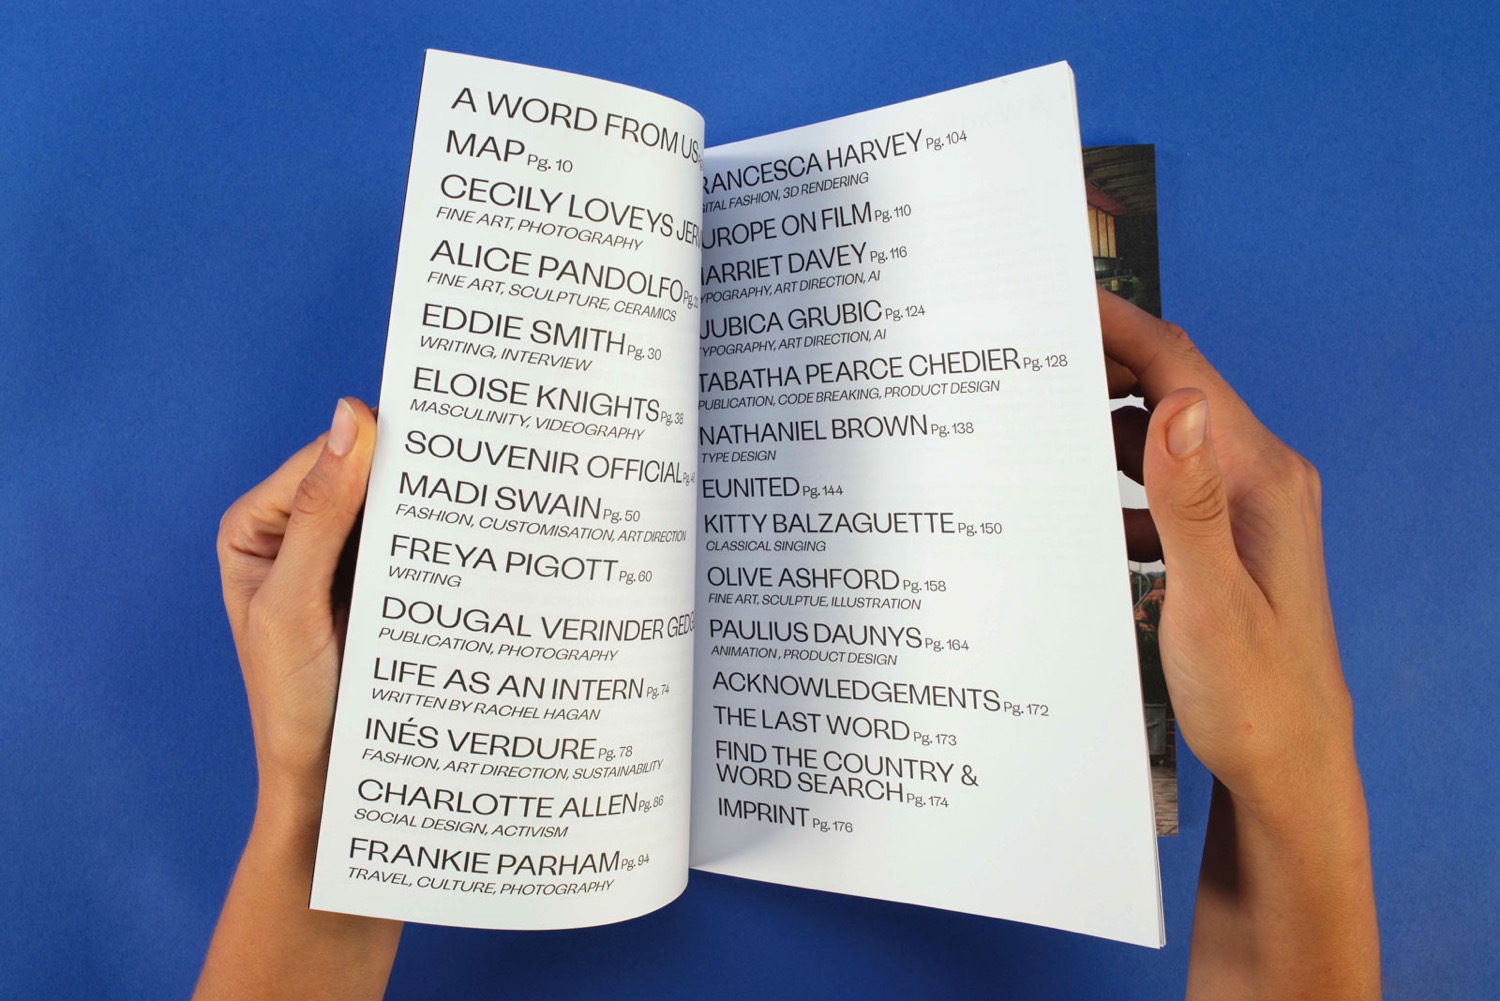 A WORD FROM US
MAP Pg. 10
CECILY LOVEYS
FINE ART, PHOTOGRAPHY
ALICE PANDOLFO Pg.
FINE ART, SCULPTURE, CERAMICS
EDDIE SMITH Pg. 30
WRITING, INTERVIEW
ELOISE KNIGHTS Pg. 38
MASCULINITY, VIDEOGRAPHY
SOUVENIR OFFICIAL Pg.
MADI SWAIN Pg. 50
FASHION, CUSTOMISATION, ART DIRECTION
FREYA PIGOTT Pg. 60
WRITING
DOUGAL VERINDER
PUBLICATION, PHOTOGRAPHY
LIFE AS AN INTERN Pg. 74
WRITTEN BY RACHEL HAGAN
INÉS VERDURE Pg. 78
FASHION, ART DIRECTION, SUSTAINABILITY
CHARLOTTE ALLEN Pg. 86
SOCIAL DESIGN, ACTIVISM
FRANKIE PARHAM Pg. 94
TRAVEL, CULTURE, PHOTOGRAPHY
RANCESCA HARVEY Pg. 104
GITAL FASHION, 3D RENDERING
UROPE ON FILM Pg. 110
HARRIET DAVEY Pg. 116
YPOGRAPHY, ART DIRECTION, AI
JUBICA GRUBIC Pg. 124
TYPOGRAPHY, ART DIRECTION, AI
TABATHA PEARCE CHEDIER Pg. 128
PUBLICATION, CODE BREAKING, PRODUCT DESIGN
NATHANIEL BROWN Pg. 138
TYPE DESIGN
EUNITED Pg. 144
KITTY BALZAGUETTE Pg. 150
CLASSICAL SINGING
OLIVE ASHFORD Pg. 158
FINE ART, SCULPTUE, ILLUSTRATION
PAULIUS DAUNYS Pg. 164
ANIMATION, PRODUCT DESIGN
ACKNOWLEDGEMENTS Pg. 172
THE LAST WORD Pg. 173
FIND THE COUNTRY &
WORD SEARCH Pg. 174
IMPRINT Pg. 176